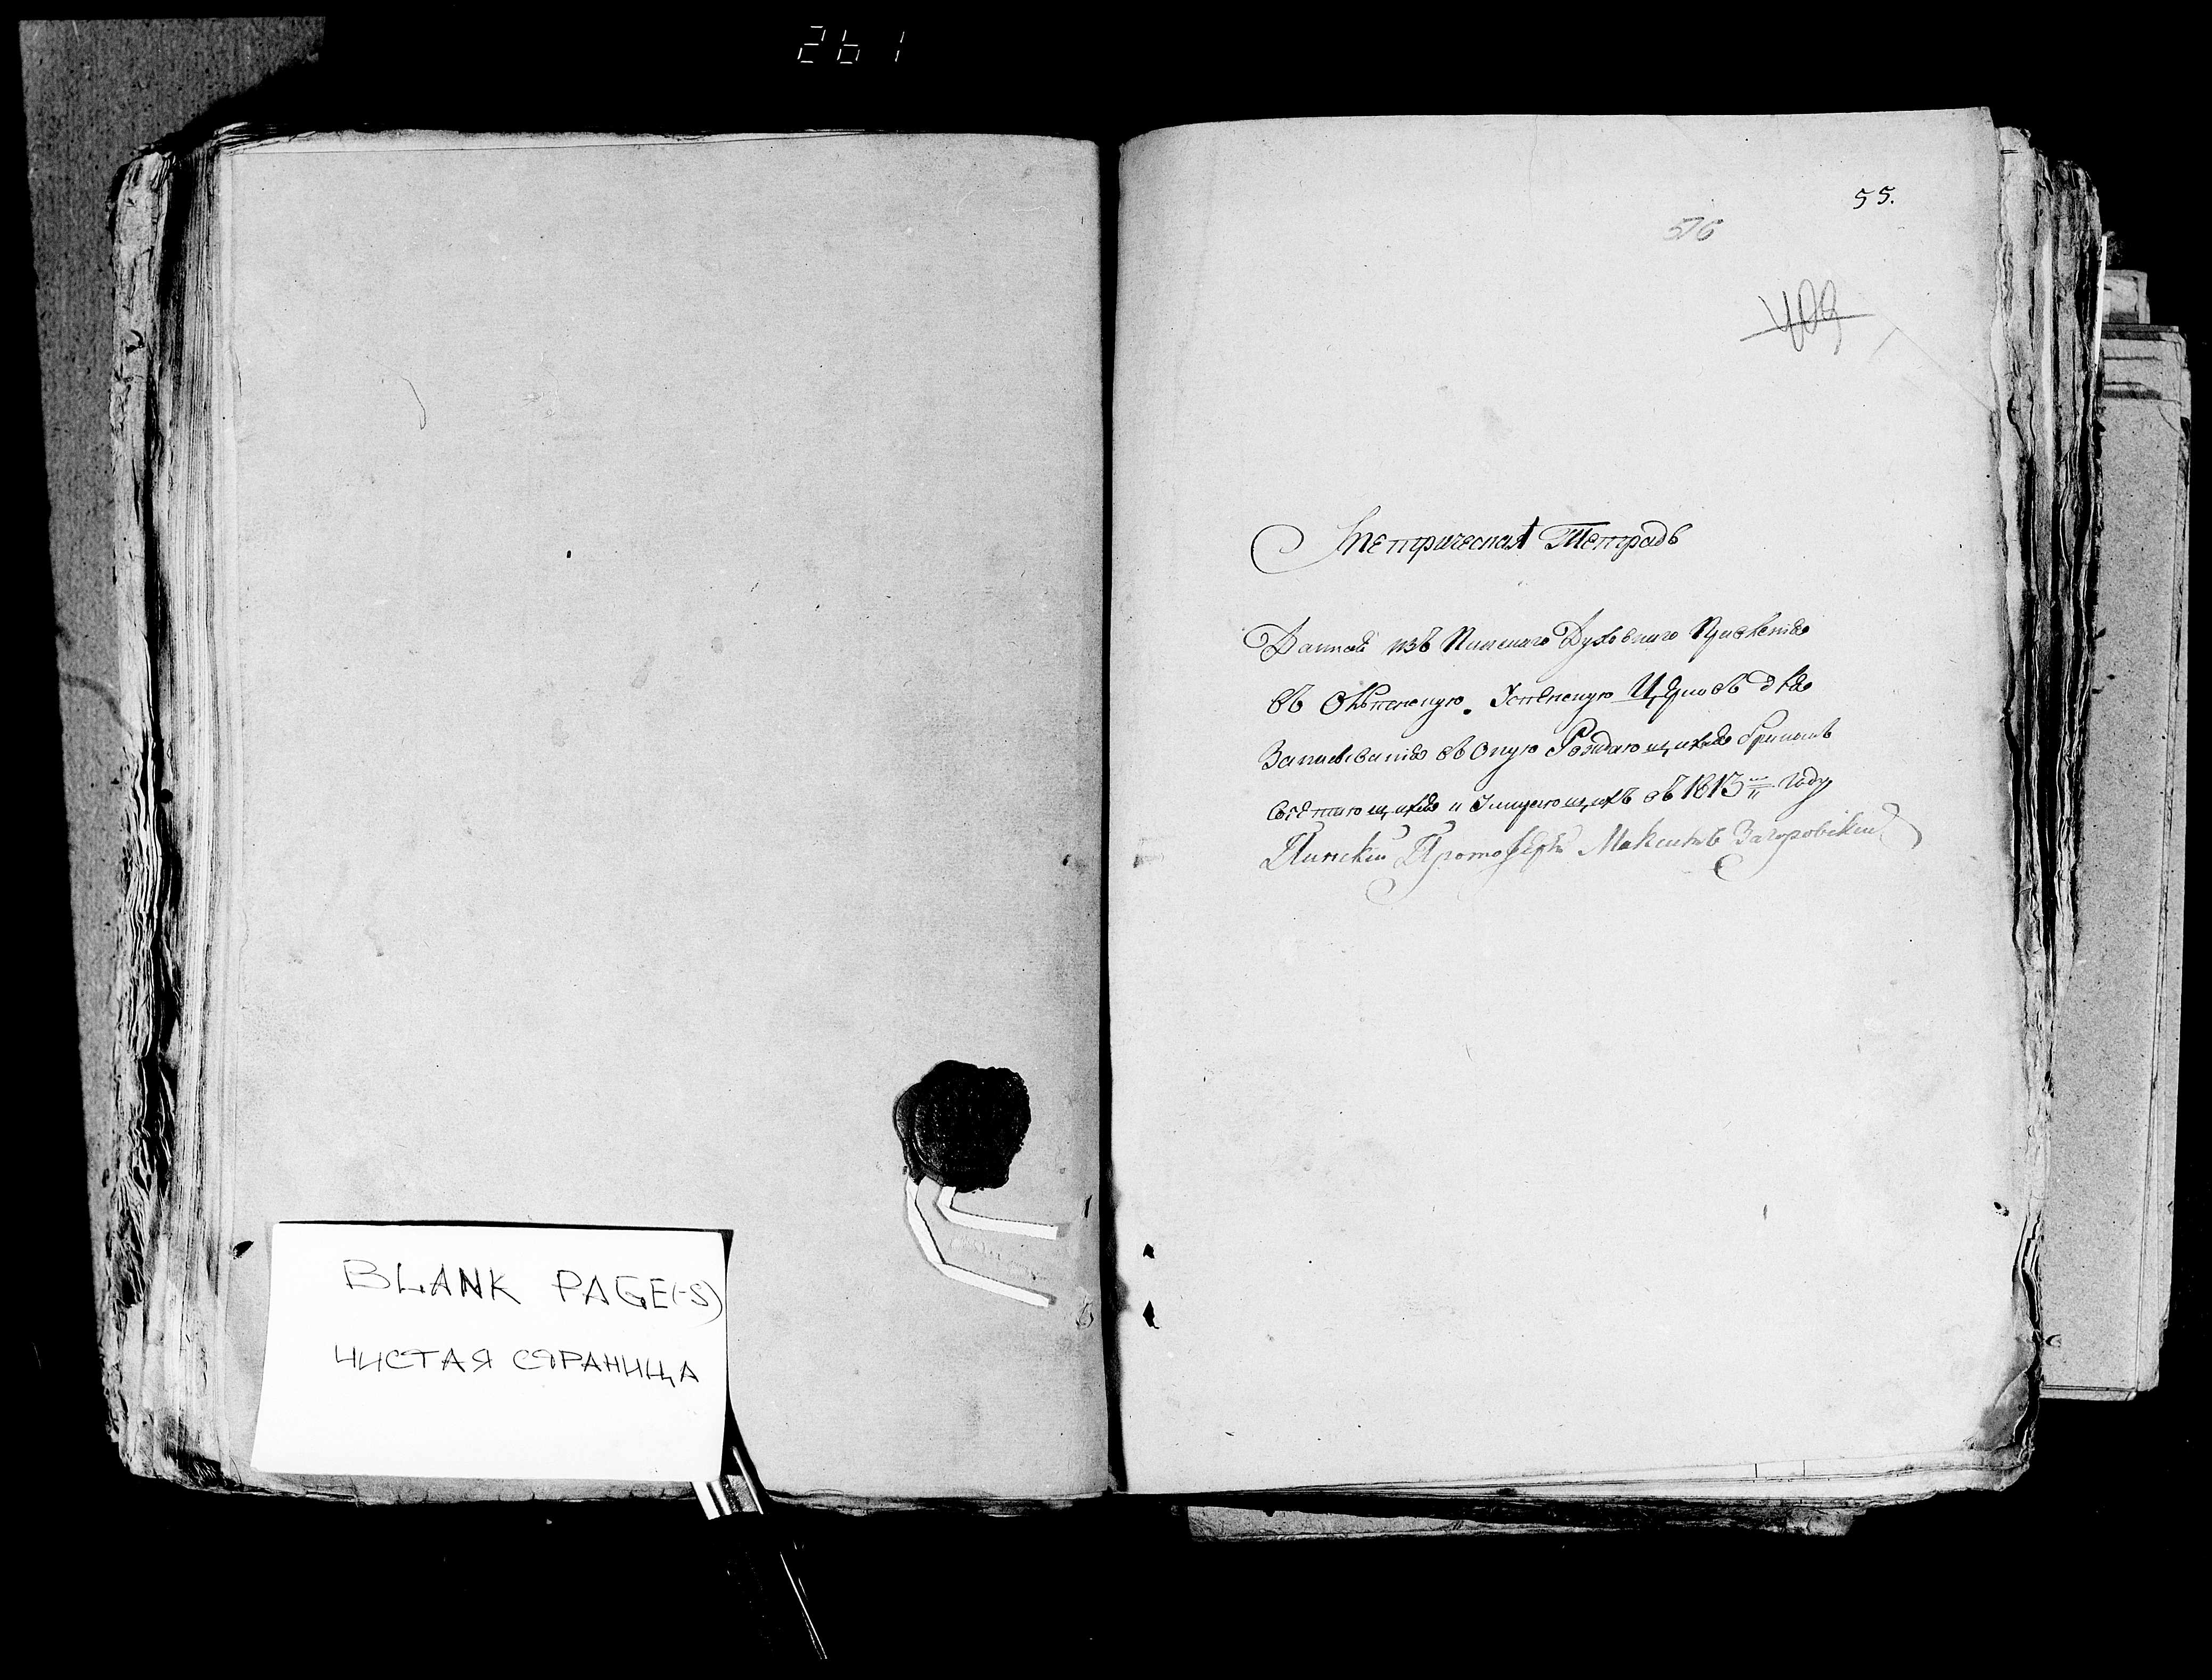 261
55.
516
409
Метрическая Тетрадь
Данная изъ Пинскаго Духовнаго Правленія
въ Успенскую Церковь для
Записыванія въ оную Рождающихся Бракомъ
Сочетающихся и Умирающихъ въ 1813 м году
Пинскій Протоіерей Максимъ Загоровскій
BLANK PAGE(-S)
ЧИСТАЯ СТРАНИЦА